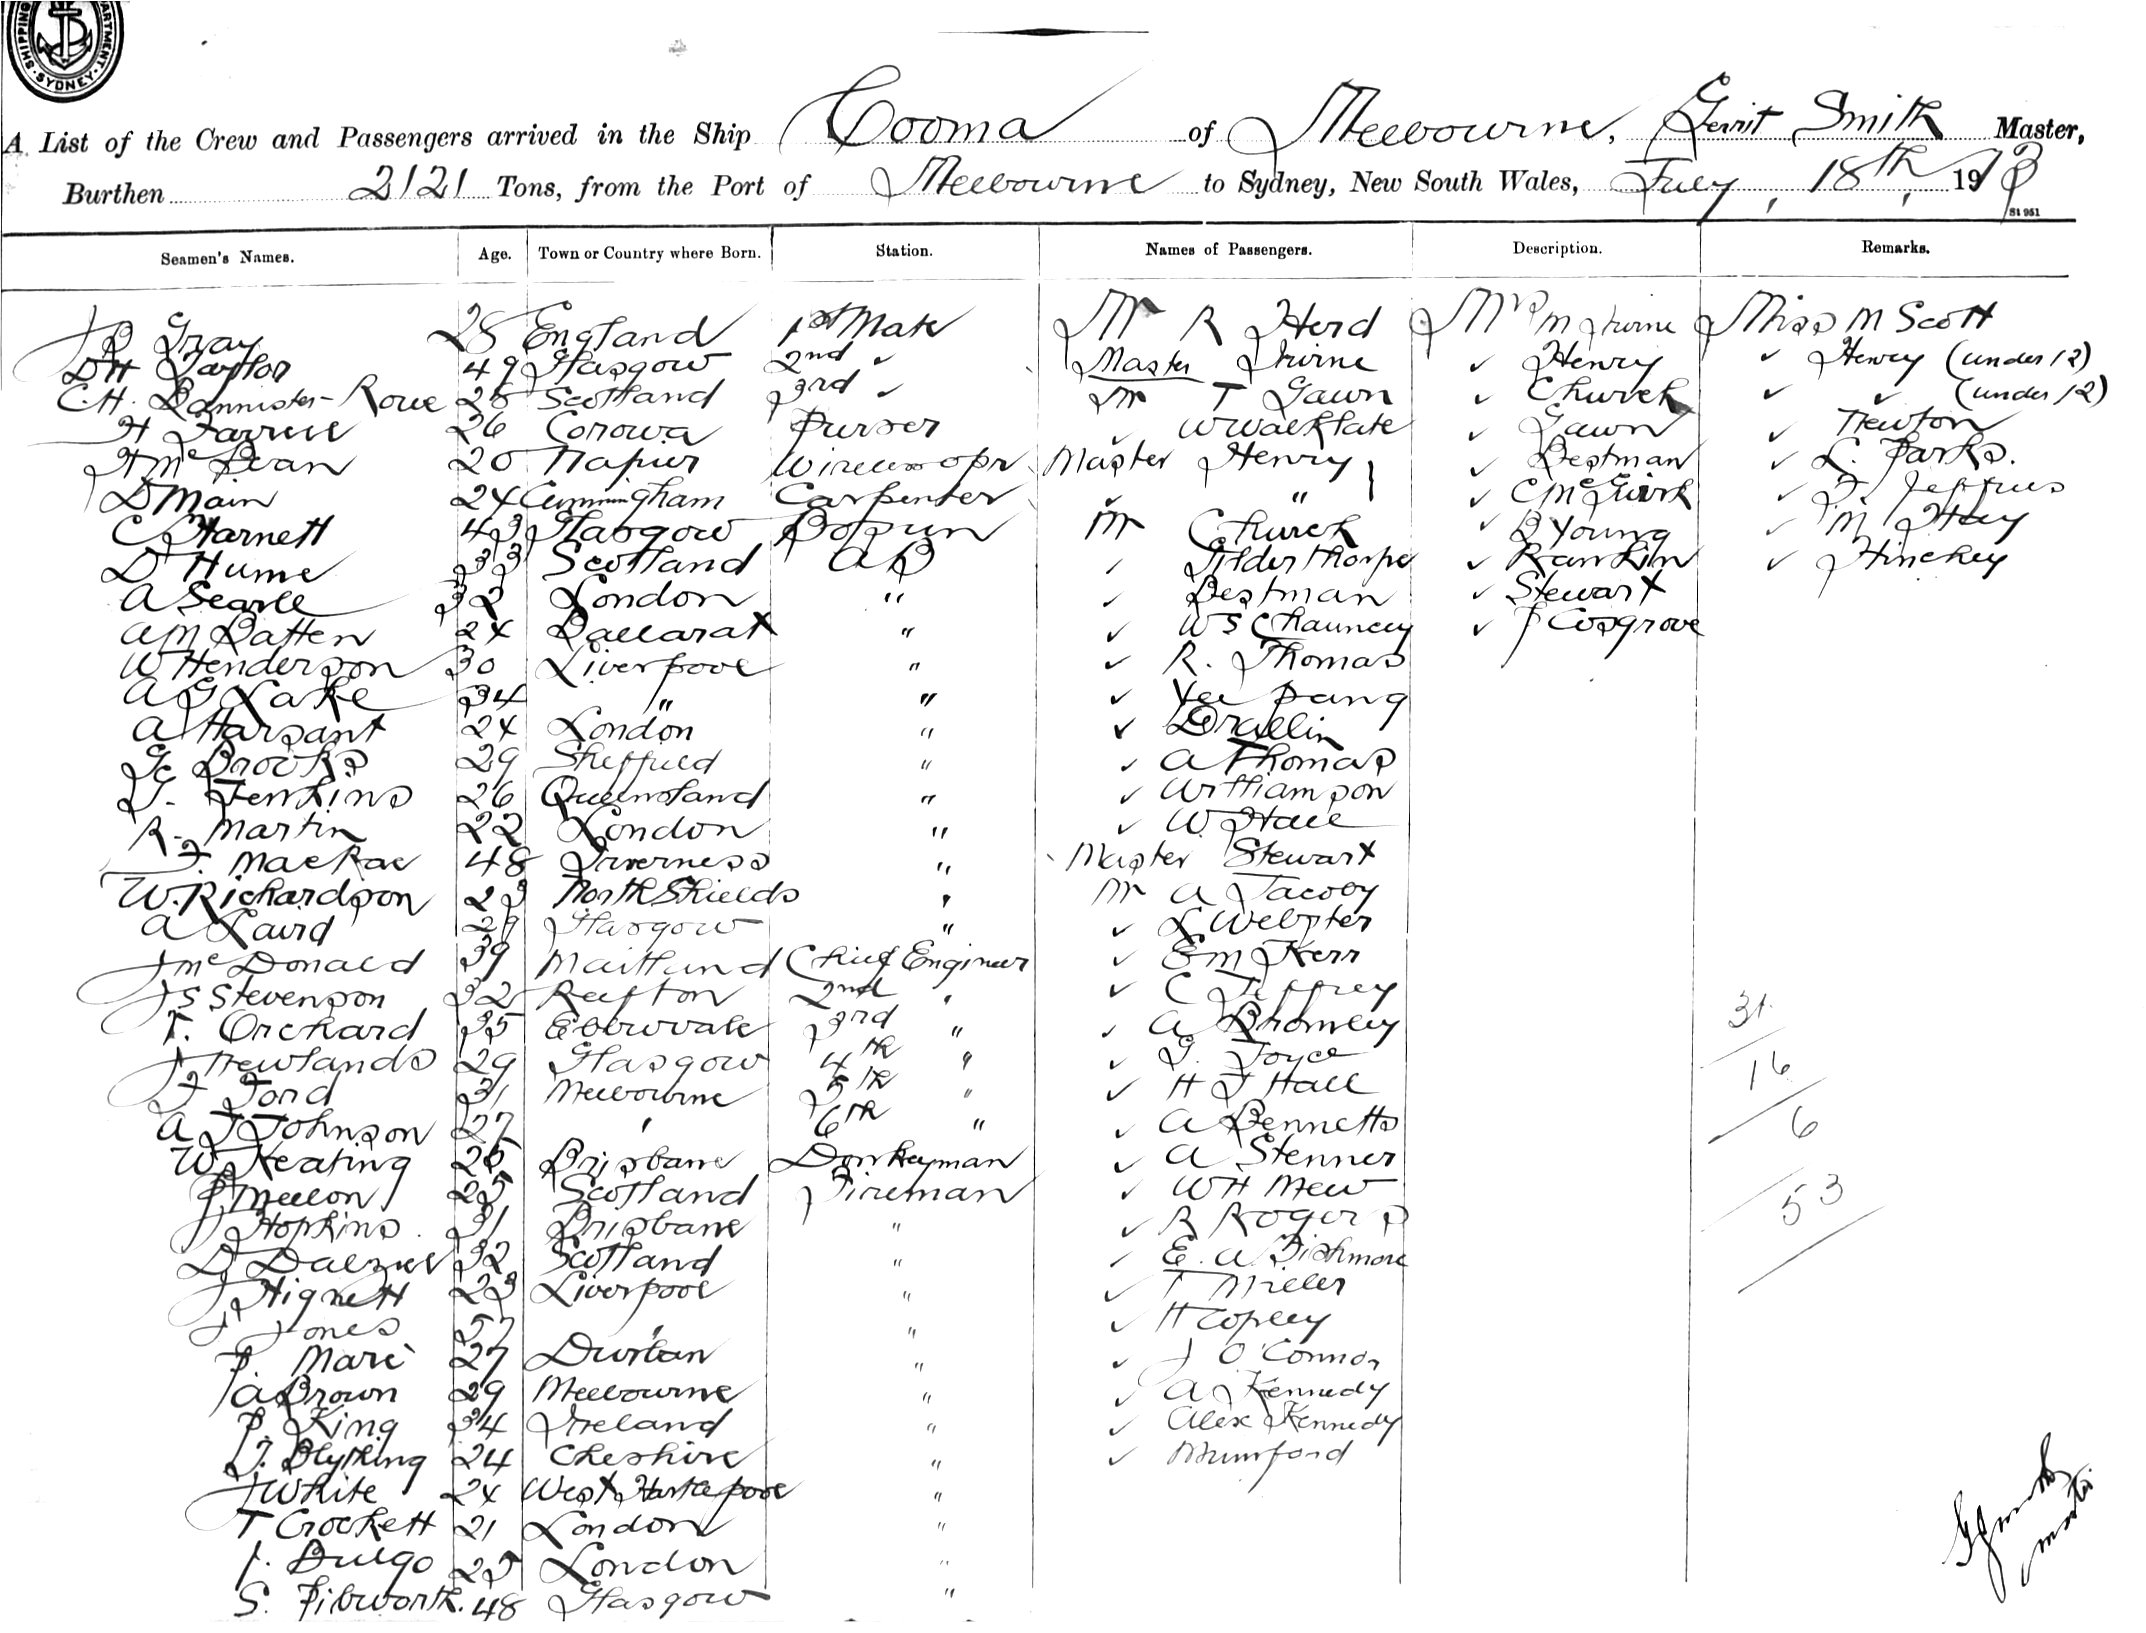 SHIPPING DEPARTMENT. SYDNEY.
A List of the Crew and Passengers arrived in the Ship Cooma of Melbourne, Gerrit Smith Master,
Burthen 2121 Tons, from the Port of Melbourne to Sydney, New South Wales, July, 18th, 1913
St 951
Seamen's Names. Age. Town or Country where Born. Station. Names of Passengers. Description. Remarks.
J B Gray 28 England 1st Mate Mr R Herd Mrs M Irvine Miss M Scott
DH Taylor 49 Glasgow 2nd ✓ Master Irvine ✓ Henry ✓ Henry (under 12)
C.H. Bannister-Rowe 28 Scotland 3rd ✓ Mr T Gawn ✓ Church ✓ ✓ (under 12)
H Farrell 26 Corowa Purser ✓ W Walklate ✓ Gawn ✓ Newton
H McLean 20 Napier Wireless opr Master Henry ✓ Bestman ✓ L. Parks.
D Main 24 Cunningham Carpenter ✓ " ✓ C McGuirk ✓ F. Jeffries
C Harnett 43 Glasgow Bosun Mr Church ✓ B Young ✓ M Hay
D Hume 33 Scotland AB ✓ Gilderthorpe ✓ Rankin ✓ Hinckey
A Searle 32 London " ✓ Bestman ✓ Stewart
AM Batten 24 Ballarat " ✓ W S Chauncey ✓ J Cosgrove
W Henderson 30 Liverpool " ✓ R. Thomas
A G Lake 34 " " ✓ Yee Pang
A Harsant 24 London " ✓ Drallin
G Brooks 29 Sheffield " ✓ A Thomas
G. Jenkins 26 Queensland " ✓ Williamson
R. Martin 22 London " ✓ W. Hall
F. MacRae 48 Inverness " Master Stewart
W. Richardson 23 North Shields " Mr A Jacoby
A Laird 29 Glasgow " ✓ L Webster
J McDonald 39 Maitland Chief Engineer ✓ E M Kerr
J S Stevenson 32 Reefton 2nd " ✓ C Jeffrey
T. Orchard 35 Ebbwvale 3rd " ✓ A Bromley
J Newlands 29 Glasgow 4th " ✓ G. Joyce
F Ford 31 Melbourne 5th " ✓ H J Hall
A J Johnson 27 " 6th " ✓ A Bennetts
W Keating 26 Brisbane Donkeyman ✓ A Stenner
P Mellon 25 Scotland Fireman ✓ WH Mew
J Hopkins 31 Brisbane " ✓ R Rogers
D Dalziel 32 Scotland " ✓ E. A. Fishmore
J Hignett 23 Liverpool " ✓ T Miller
J Jones " " ✓ H Copley
P. Mare 27 Durban " ✓ J O'Connor
A Brown 29 Melbourne " ✓ A Kennedy
P. King 34 Ireland " ✓ Alex Kennedy
J. Blything 24 Cheshire " ✓ Mumford
J White 24 West Hartlepool "
T Crockett 21 London "
J. Dulgo 25 London "
S. Pibworth. 48 Glasgow "
31
16
6
53
G Smith
master